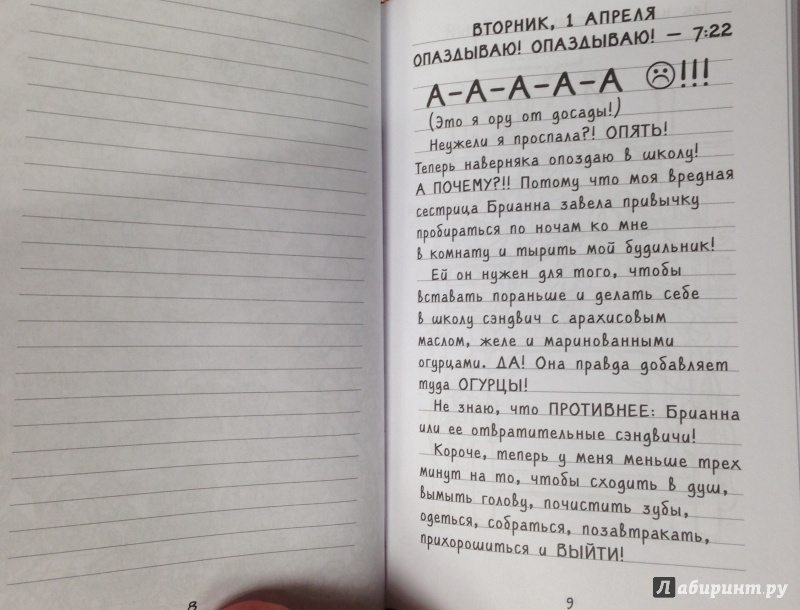 ВТОРНИК, 1 АПРЕЛЯ
ОПАЗДЫВАЮ! ОПАЗДЫВАЮ! — 7:22
А-А-А-А-А ☹!!!
(Это я ору от досады!)
Неужели я проспала?! ОПЯТЬ!
Теперь наверняка опоздаю в школу!
А ПОЧЕМУ?!! Потому что моя вредная
сестрица Брианна завела привычку
пробираться по ночам ко мне
в комнату и тырить мой будильник!
Ей он нужен для того, чтобы
вставать пораньше и делать себе
в школу сэндвич с арахисовым
маслом, желе и маринованными
огурцами. ДА! Она правда добавляет
туда ОГУРЦЫ!
Не знаю, что ПРОТИВНЕЕ: Брианна
или ее отвратительные сэндвичи!
Короче, теперь у меня меньше трех
минут на то, чтобы сходить в душ,
вымыть голову, почистить зубы,
одеться, собраться, позавтракать,
прихорошиться и ВЫЙТИ!
8
9
Лабиринт.ру